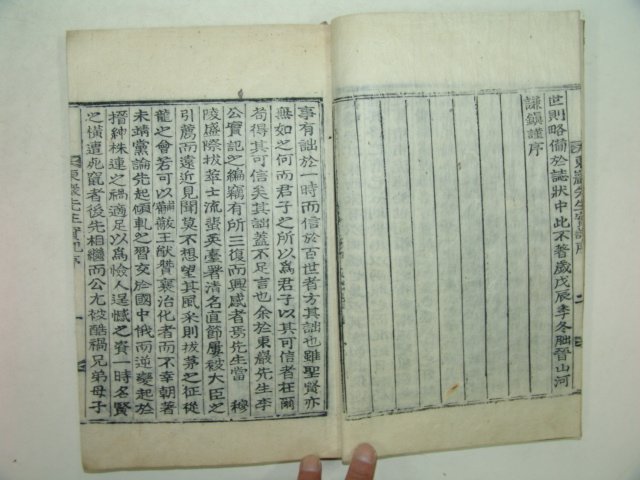 世則略備於誌狀中此不著歲戊辰季冬朏晉山河
謙鎭謹序
東巖先生實記序 二
事有詘於一時而信於百世者方其詘也雖聖賢亦
無如之何而君子之所以爲君子以其可信者在爾
苟得其可信矣其詘蓋不足言也余於東巖先生李
公實記之編竊有所三復而興感者焉先生當 穆
陵盛際拔萃士流蜚英臺署淸名直節屢被大臣之
引薦而遠近見聞莫不想望其風采則拔茅之征從
龍之會若可以黼黻王猷贊襄治化者而不幸朝著
未靖黨論先起傾軋之習交於國中俄而逆變起於
搢紳株連之禍適足以爲憸人逞憾之資一時名賢
之橫遭寃竄者後先相繼而公尤被酷禍兄弟母子
東巖先生實記序 一